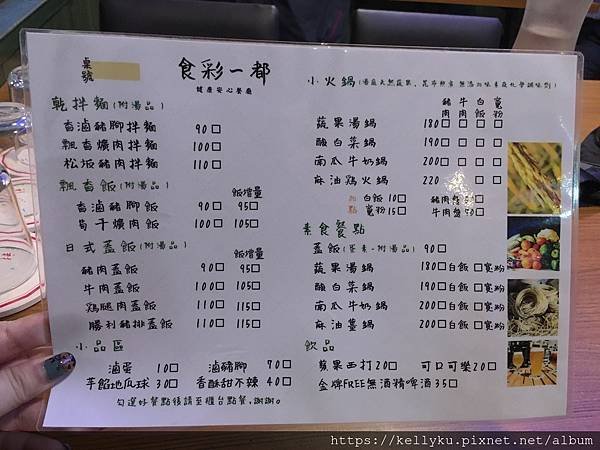 桌號
食彩一都
健康安心餐廳
乾拌麵(附湯品)
香滷豬腳拌麵 90□
飄香爌肉拌麵 100□
松坂豬肉拌麵 110□
飄香飯(附湯品) 飯增量
香滷豬腳飯 90□ 95□
筍干爌肉飯 100□ 105□
日式蓋飯(附湯品) 飯增量
豬肉蓋飯 90□ 95□
牛肉蓋飯 100□ 105□
鷄腿肉蓋飯 110□ 115□
勝利豬排蓋飯 110□ 115□
小品區
滷蛋 10□ 滷豬腳 70□
芋餡地瓜球 30□ 香酥甜不辣 40□
勾選好餐點後請至櫃台點餐,謝謝。
小火鍋
豬肉 牛肉 白飯 寬粉
蔬果湯鍋 180□□□□
酸白菜鍋 190□□□□
南瓜牛奶鍋 200□□□□
麻油鷄火鍋 220
加點 白飯10□ 豬肉盤50□
寬粉15□ 牛肉盤50□
素食餐點
蓋飯(蛋素-附湯品) 90□
蔬果湯鍋 180□白飯□寬粉
酸白菜鍋 190□白飯□寬粉
南瓜牛奶鍋 200□白飯□寬粉
麻油薑鍋 200□白飯□寬粉
飲品
蘋果西打20□ 可口可樂20□
金牌FREE無酒精啤酒35□
https://kellyku.pixnet.net/album